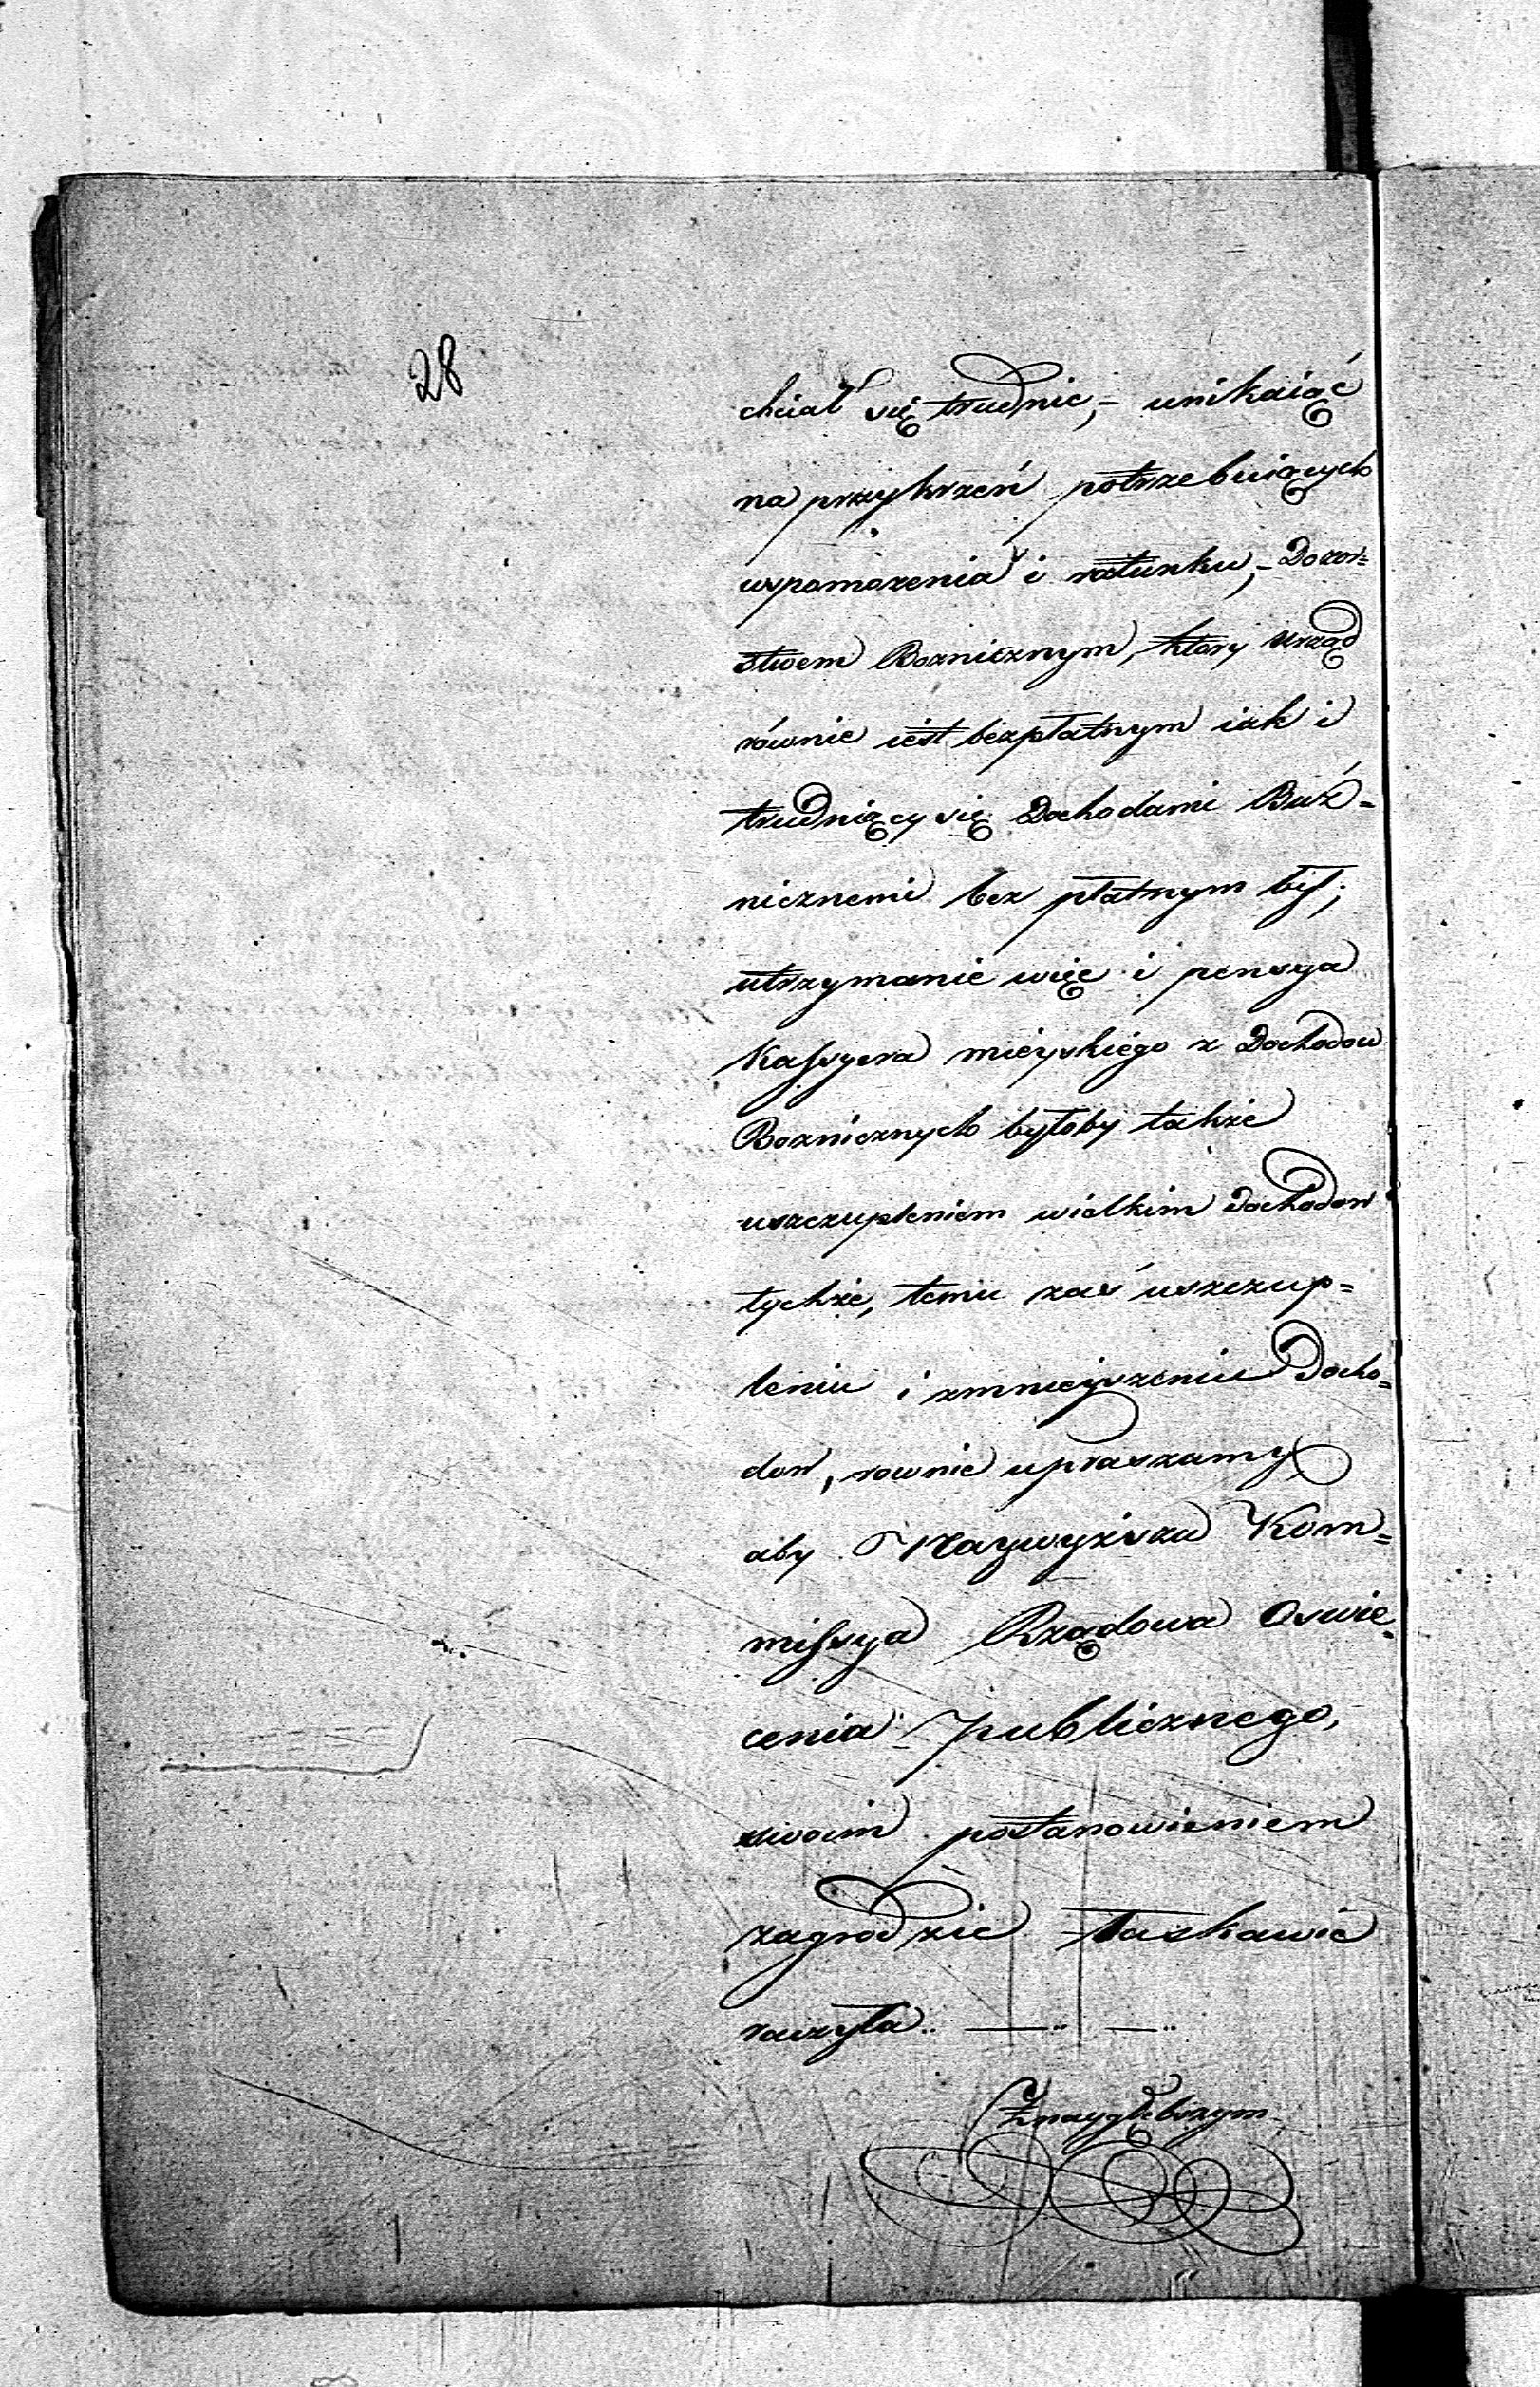 28
chciał się trudnić, – unikaiąc
na przykrzeń potrzebuiących
wspomożenia i ratunku, – Dozor=
stwem Boznicznym, ktory urząd
równie iest bezpłatnym iak i
trudniący się Dochodami Buź=
nicznemi bez płatnym był;
utrzymanie więc i pensya
Kassyera mieyskiego z Dochodow
Boznicznych byłoby także
uszczupleniem wielkim Dochodow
tychże, temu zaś uszczup=
leniu i zmnieyszeniu Docho=
dow, rownie upraszamy
aby Naywyższa Kom=
missya Rządowa Oswie=
cenia Publicznego,
swoim postanowieniem
zagrodzić łaskawie
raczyła.. — .. — ..
Z naygłębszym